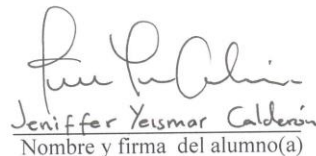 Jeniffer Yeismar Calderón
Nombre y firma del alumno(a)